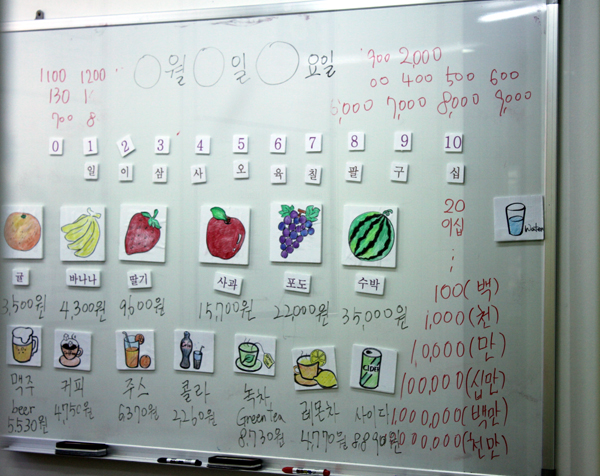 월 일 요일
1100 1200
130
700 8
300 2,000
00 400 500 600
6,000 7,000 8,000 9,000
0 1 2 3 4 5 6 7 8 9 10
일 이 삼 사 오 육 칠 팔 구 십
20
이십
water
귤 바나나 딸기 사과 포도 수박
3,500원 4,300원 9,600원 15,700원 22,000원 35,000원
100(백)
1,000(천)
10,000(만)
100,000(십만)
1,000,000(백만)
000,000(천만)
CIDER
맥주 커피 주스 콜라 녹차 레몬차 사이다
beer 4,750원 6,370원 2,260원 Green tea 4,770원 8,890원
5,530원 8,730원